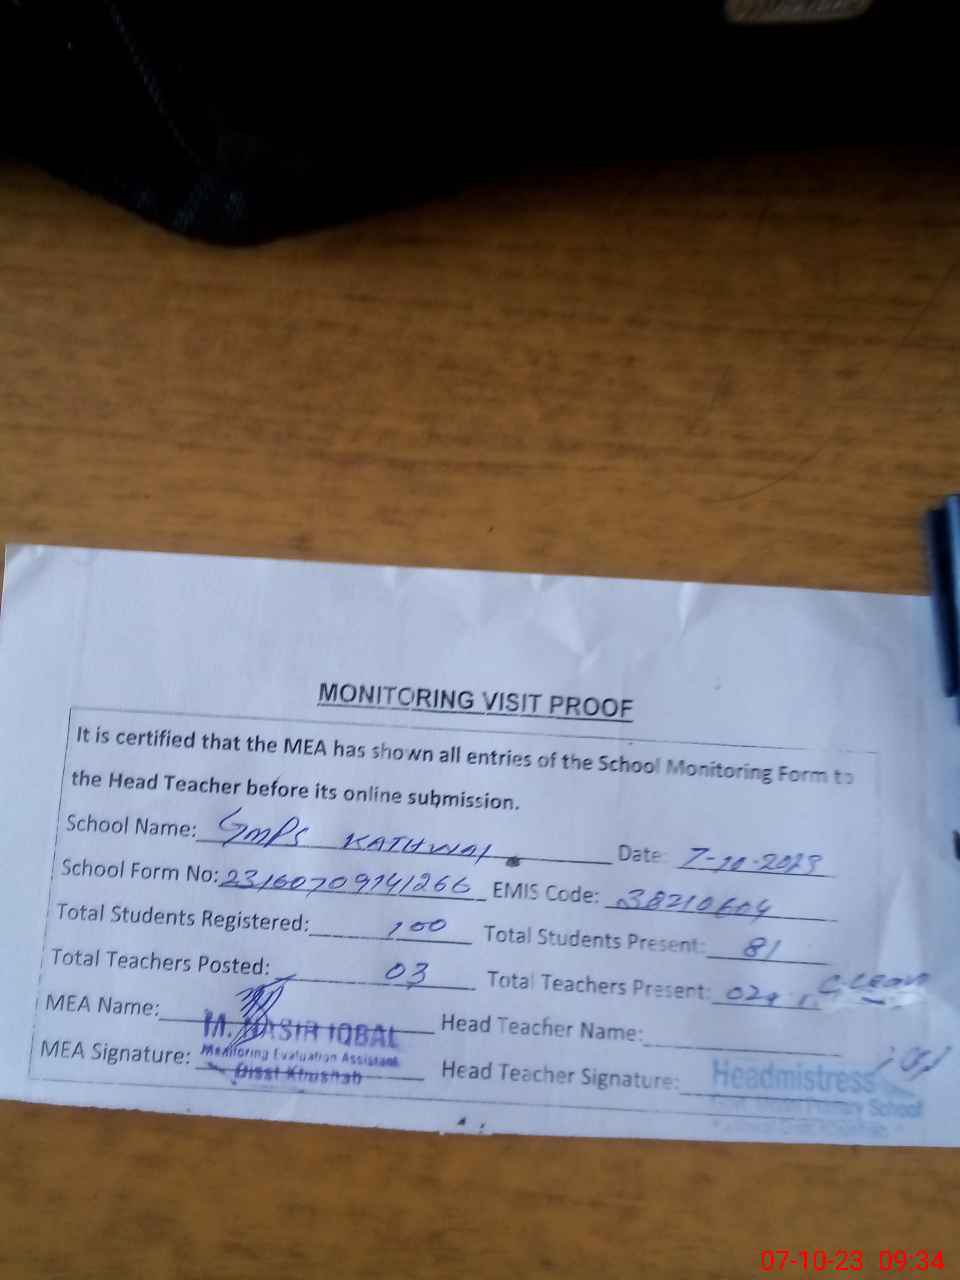 MONITORING VISIT PROOF
It is certified that the MEA has shown all entries of the School Monitoring Form to
the Head Teacher before its online submission.
School Name: GMPS KATHWAI Date: 7-10-2023
School Form No: 23160709141266 EMIS Code: 38210604
Total Students Registered: 100 Total Students Present: 81
Total Teachers Posted: 03 Total Teachers Present: 02+1
MEA Name: M. NASIR IQBAL Head Teacher Name:
Monitoring Evaluation Assistant
MEA Signature: Head Teacher Signature: Headmistress
Disst Khushab
Primary School
07-10-23 09:34